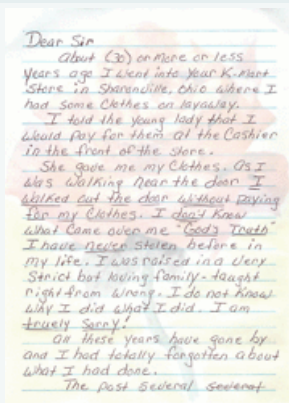 Dear Sir
about (30) or more or less
years ago I went into your K-Mart
Store in Sharonville, Ohio where I
had some Clothes on layaway.
I told the young lady that I
would pay for them at the Cashier
in the front of the store.
She gave me my Clothes. as I
was walking near the door I
walked out the door without paying
for my Clothes. I don't know
what came over me "God's Truth"
I have never stolen before in
my life. I was raised in a very
strict but loving family-taught
right from wrong. I do not know
why I did what I did. I am
truely sorry!
all these years have gone by
and I had totally forgotten about
what I had done.
The past several several